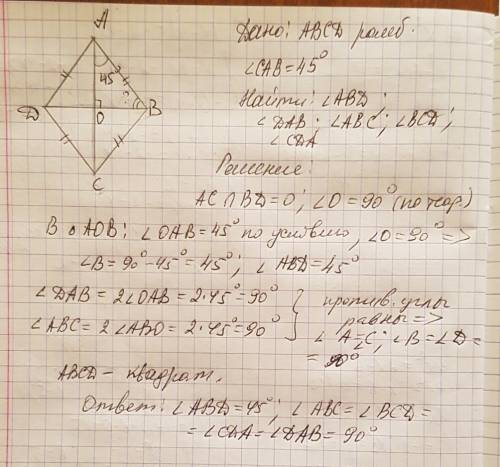 A
45°
?
D
O
B
C
Дано: ABCD ромб.
∠CAB=45°
Найти: ∠ABD;
∠DAB; ∠ABC; ∠BCD;
∠CDA
Решение:
AC∩BD=O; ∠O=90° (по теор.)
В △AOB: ∠OAB=45° по условию, ∠O=90° =>
∠B=90°-45°=45°; ∠ABD=45°
∠DAB=2∠OAB=2·45°=90°
∠ABC=2∠ABO=2·45°=90°
против. углы
равны =>
∠A=∠C; ∠B=∠D=
=90°
ABCD - квадрат.
Ответ: ∠ABD=45°; ∠ABC=∠BCD=
=∠CDA=∠DAB=90°